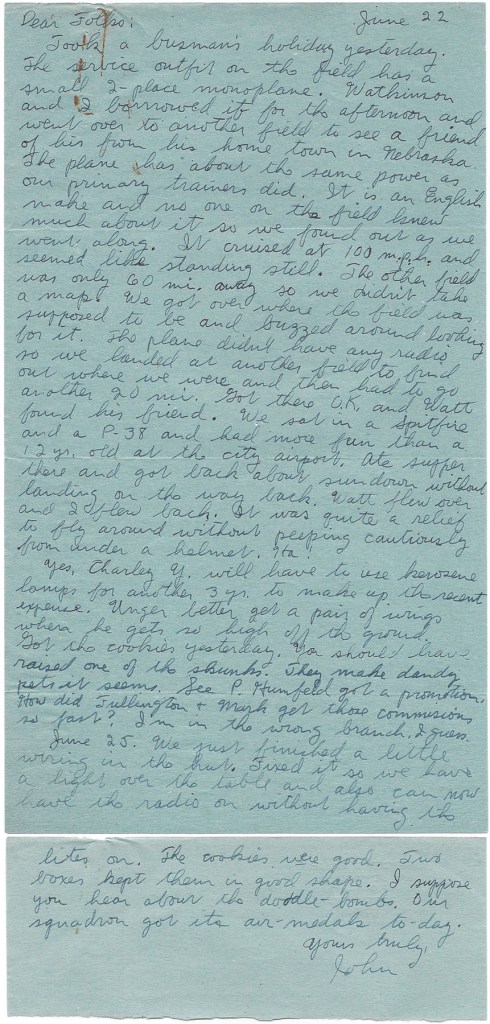 Dear Folks; June 22
Took a busman's holiday yesterday.
The service outfit on the field has a
small 2-place monoplane. Watkinson
and I borrowed it for the afternoon and
went over to another field to see a friend
of his from his home town in Nebraska.
The plane has about the same power as
our primary trainers did. It is an English
make and no one on the field knew
much about it so we found out as we
went along. It cruised at 100 m.p.h. and
seemed like standing still. The other field
was only 60 mi. away so we didn't take
a map. We got over where the field was
supposed to be and buzzed around looking
for it. The plane didn't have any radio
so we landed at another field to find
out where we were and then had to go
another 20 mi. Got there O.K. and Watt
found his friend. We sat in a Spitfire
and a P-38 and had more fun than a
12 yr. old at the city airport. Ate supper
there and got back about sundown without
landing on the way back. Watt flew over
and I flew back. It was quite a relief
to fly around without peeping cautiously
from under a helmet. Ha!
Yes, Charley Y. will have to use kerosene
lamps for another 3 yr. to make up the recent
expense. Unger better get a pair of wings
where he gets so high off the ground.
Got the cookies yesterday. You should have
raised one of the skunks. They make dandy
pets it seems. See P. Humfeld got a promotion.
How did Tullington & Mark get those commisions
so fast? I'm in the wrong branch, I guess.
June 25. We just finished a little
wiring in the hut. Fixed it so we have
a light over the table and also can now
have the radio on without having the
lites on. The cookies were good. Two
boxes kept them in good shape. I suppose
you hear about the doodle-bombs. Our
squadron got its air-medals to-day.
Yours truly,
John